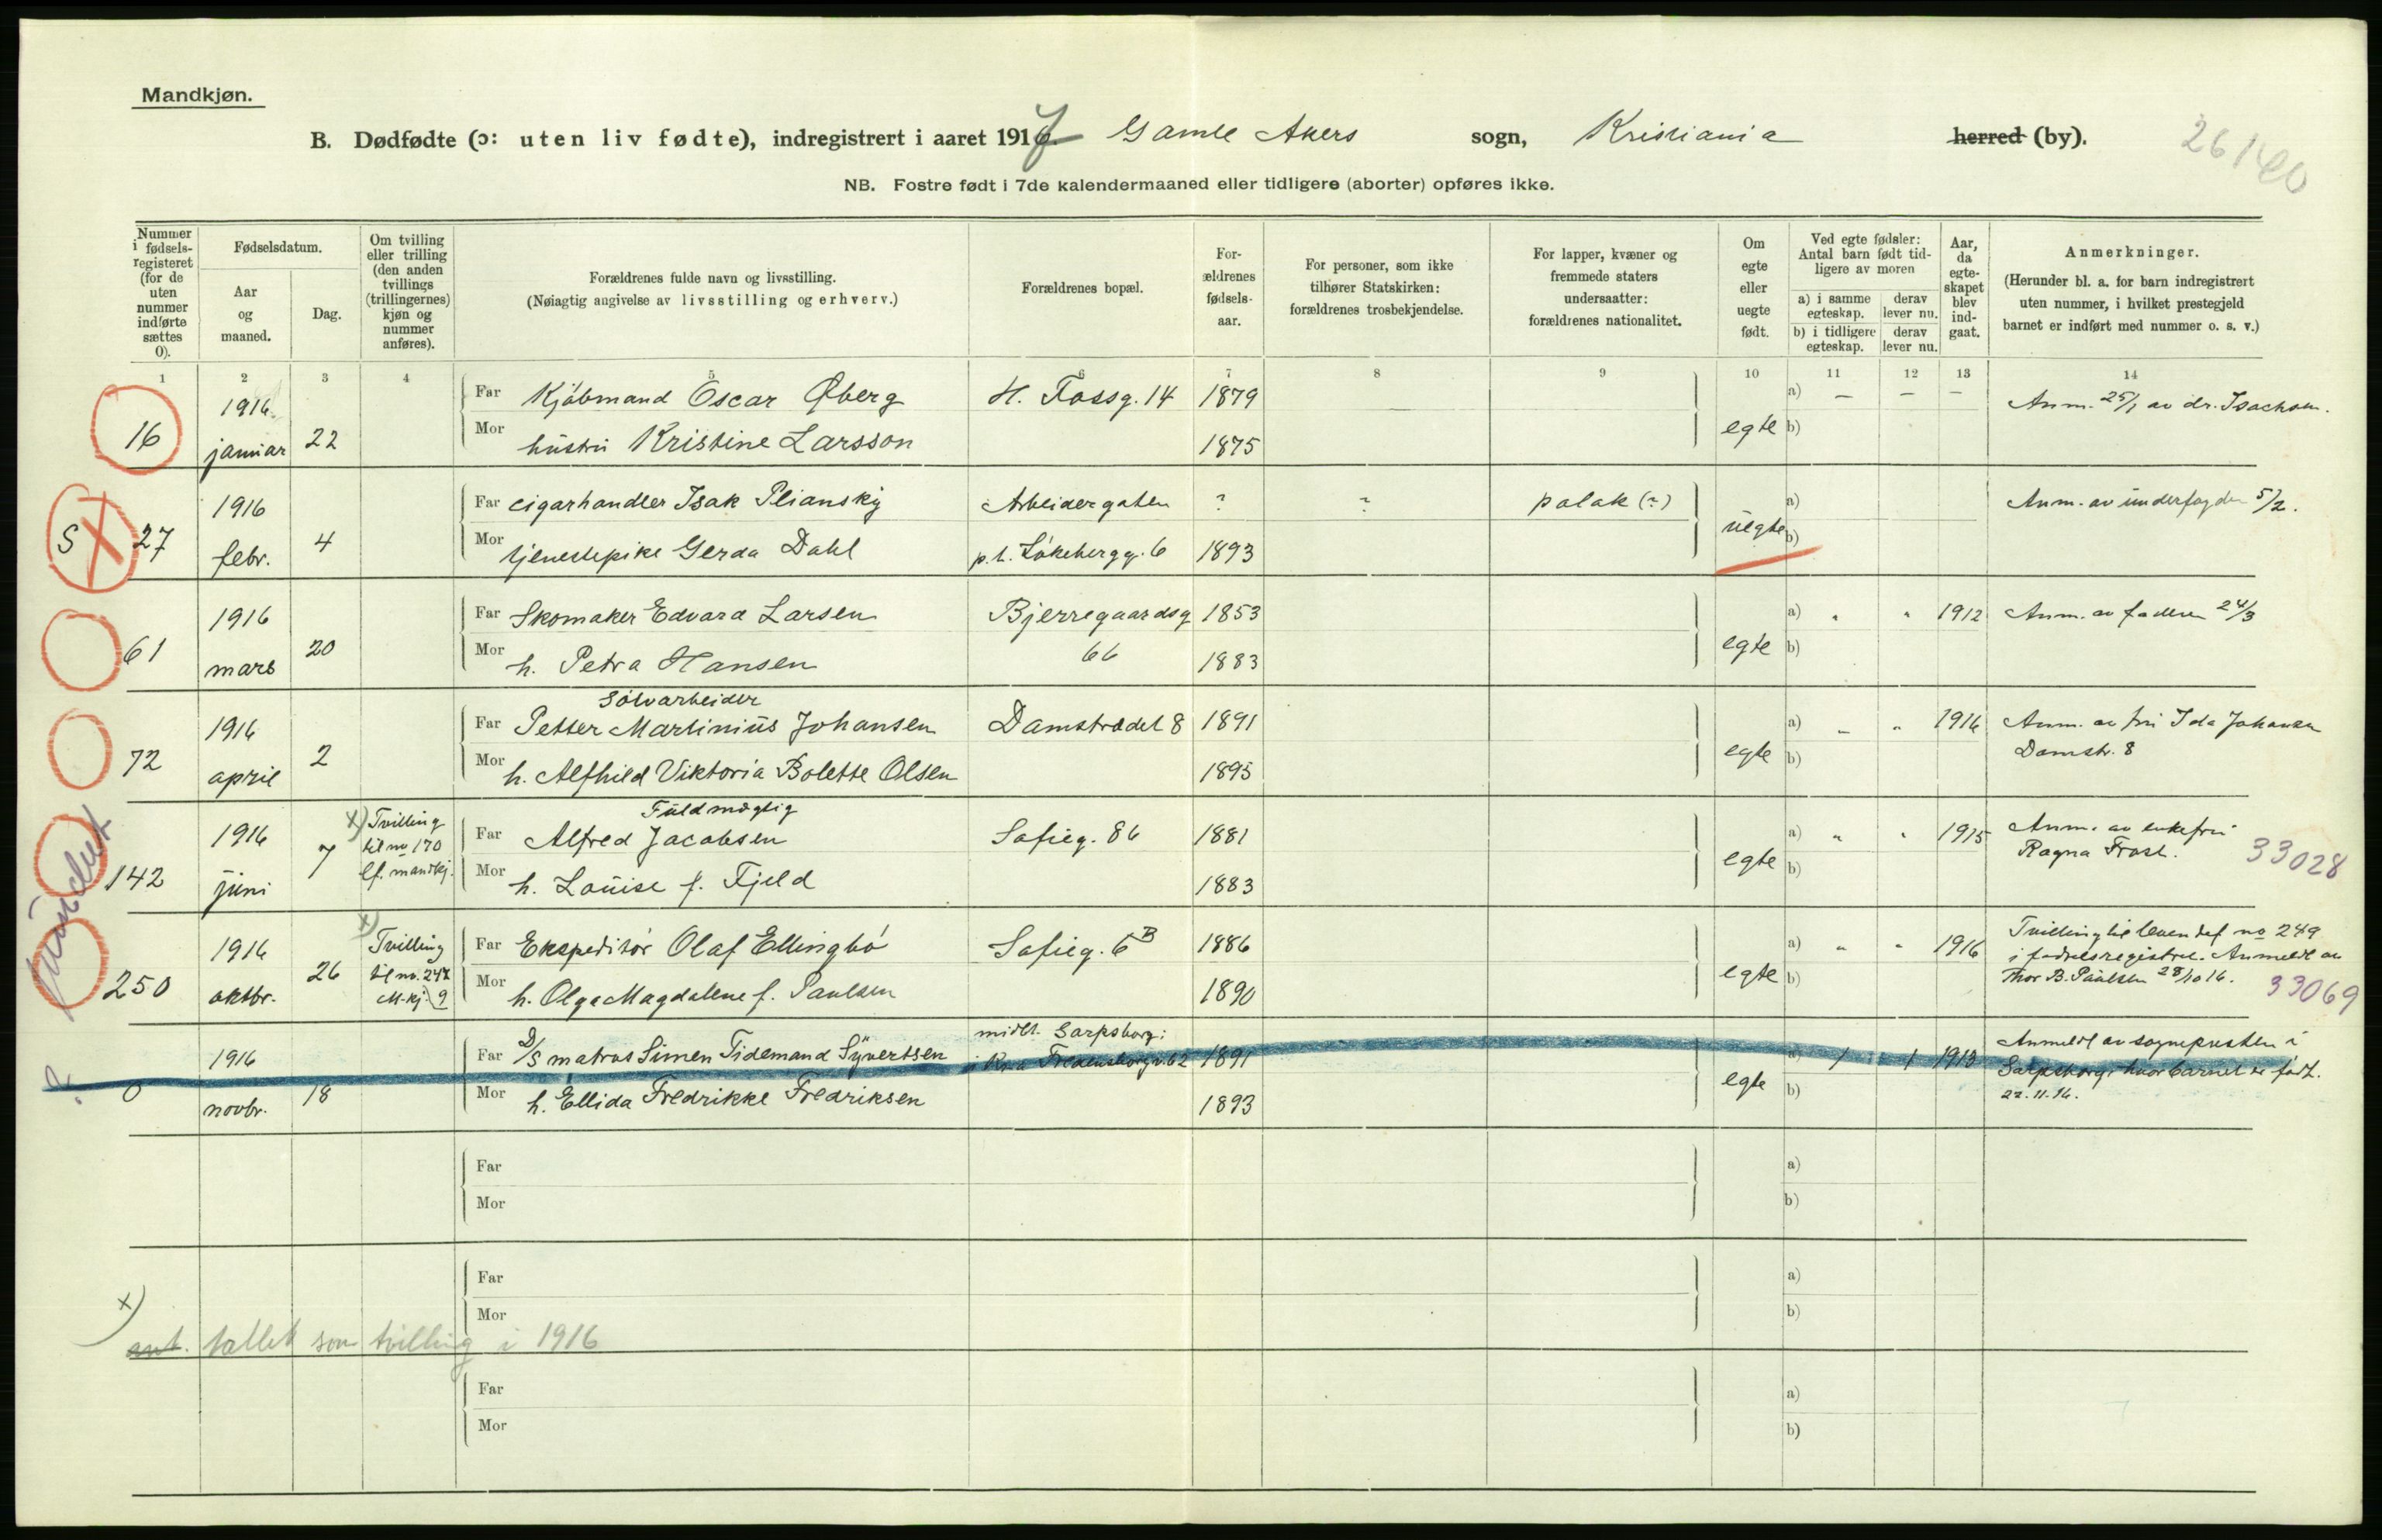 Mandkjøn.
B. Dødfødte (ɔ: uten liv fødte), indregistrert i aaret 1916. Gamle Akers sogn, Kristiania herred (by).
NB. Fostre født i 7de kalendermaaned eller tidligere (aborter) opføres ikke.
Nummer i fødsels-registeret (for de uten nummer indførte sættes 0).
Fødselsdatum.
Aar og maaned.
Dag.
Om tvilling eller trilling (den anden tvillings (trillingernes) kjøn og nummer anføres).
Forældrenes fulde navn og livsstilling.
(Nøiagtig angivelse av livsstilling og erhverv.)
Forældrenes bopæl.
For-ældrenes fødsels-aar.
For personer, som ikke tilhører Statskirken: forældrenes trosbekjendelse.
For lapper, kvæner og fremmede staters undersaatter: forældrenes nationalitet.
Om egte eller uegte født.
Ved egte fødsler: Antal barn født tid-ligere av moren
a) i samme egteskap. derav lever nu.
b) i tidligere egteskap. derav lever nu.
Aar, da egte-skapet blev ind-gaat.
Anmerkninger.
(Herunder bl. a. for barn indregistrert uten nummer, i hvilket prestegjeld barnet er indført med nummer o. s. v.)
1 2 3 4 5 6 7 8 9 10 11 12 13 14
16 1916 januar 22
Far Kjøbmand Oscar Øberg H. Fossg. 14 1879 — a) — — — Anm. 25/1 av dr. Isachsen.
Mor hustru Kristine Larsson 1875 egte b)
S 27 1916 febr. 4
Far cigarhandler Isak Pliansky Arbeidergaten ? ? polak (?) a) Anm. av 5/2.
Mor tjenestepike Gerda Dahl p.t. Løkebergg. 6 1893 uegte b)
61 1916 mars 20
Far Skomaker Edvard Larsen Bjerregaardsg 1853 a) " " 1912 Anm. av faderen 24/3
Mor h. Petra Hansen 66 1883 egte b)
72 1916 april 2
Sølvarbeider
Far Petter Martinius Johansen Damstrædet 8 1891 a) " " 1916 Anm. av fru Ida Johansen
Mor h. Alfhild Viktoria Bolette Olsen 1895 egte b) Damstr. 8
142 1916 juni 7 x) Tvilling til no 170 lf. mandkj.
Fuldmægtig
Far Alfred Jacobsen Sofieg. 86 1881 a) " " 1915 Anm. av enkefru
Mor h. Louise f. Fjeld 1883 egte b) Ragna Frost. 33028
250 1916 oktbr. 26 x) Tvilling til no. 249 M.kj.
Far Ekspeditør Olaf Ellingbø Sofieg. 6B 1886 a) " " 1916 Tvilling til levendef no 249
Mor h. Olga Magdalene f. Paulsen 1890 egte b) i fødselsregistret. Anmeldt av
Thor B. Paulsen 28/10 16. 33069
0 1916 novbr. 18
midlt. Sarpsborg:
Far D/S matros Simen Tidemand Syvertsen i Kra Fredensborgv. 62 1891 a) 1 1 1913 Anmeldt av sognepresten i
Mor h. Ellida Fredrikke Fredriksen 1893 egte b) Sarpsborg, hvor barnet er født.
22.11.16.
Far a)
Mor b)
Far a)
Mor b)
x) ant. tallet som tvilling i 1916
Far a)
Mor b)